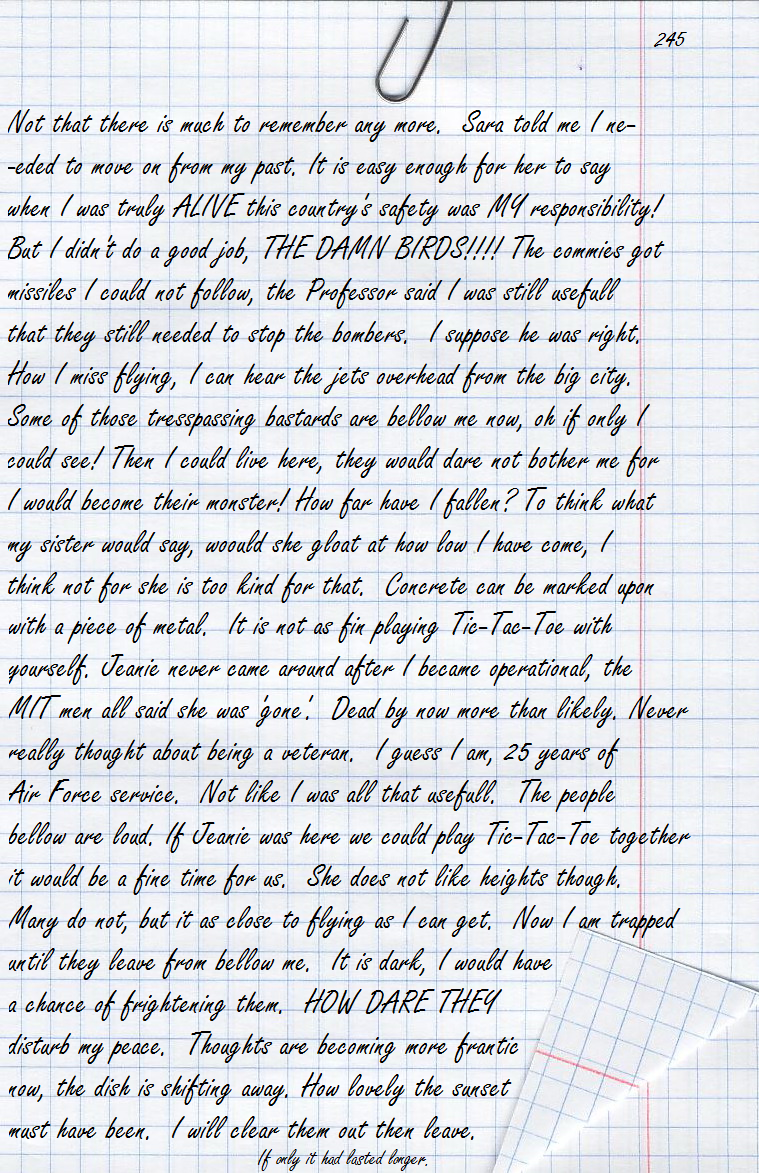 245
Not that there is much to remember any more. Sara told me I ne-
-eded to move on from my past. It is easy enough for her to say
when I was truly ALIVE this country's safety was MY responsibility!
But I didn't do a good job, THE DAMN BIRDS!!!! The commies got
missiles I could not follow, the Professor said I was still usefull
that they still needed to stop the bombers. I suppose he was right.
How I miss flying, I can hear the jets overhead from the big city.
Some of those tresspassing bastards are bellow me now, oh if only I
could see! Then I could live here, they would dare not bother me for
I would become their monster! How far have I fallen? To think what
my sister would say, woould she gloat at how low I have come, I
think not for she is too kind for that. Concrete can be marked upon
with a piece of metal. It is not as fin playing Tic-Tac-Toe with
yourself. Jeanie never came around after I became operational, the
MIT men all said she was 'gone'. Dead by now more than likely. Never
really thought about being a veteran. I guess I am, 25 years of
Air Force service. Not like I was all that usefull. The people
bellow are loud. If Jeanie was here we could play Tic-Tac-Toe together
it would be a fine time for us. She does not like heights though.
Many do not, but it as close to flying as I can get. Now I am trapped
until they leave from bellow me. It is dark, I would have
a chance of frightening them. HOW DARE THEY
disturb my peace. Thoughts are becoming more frantic
now, the dish is shifting away. How lovely the sunset
must have been. I will clear them out then leave.
If only it had lasted longer.